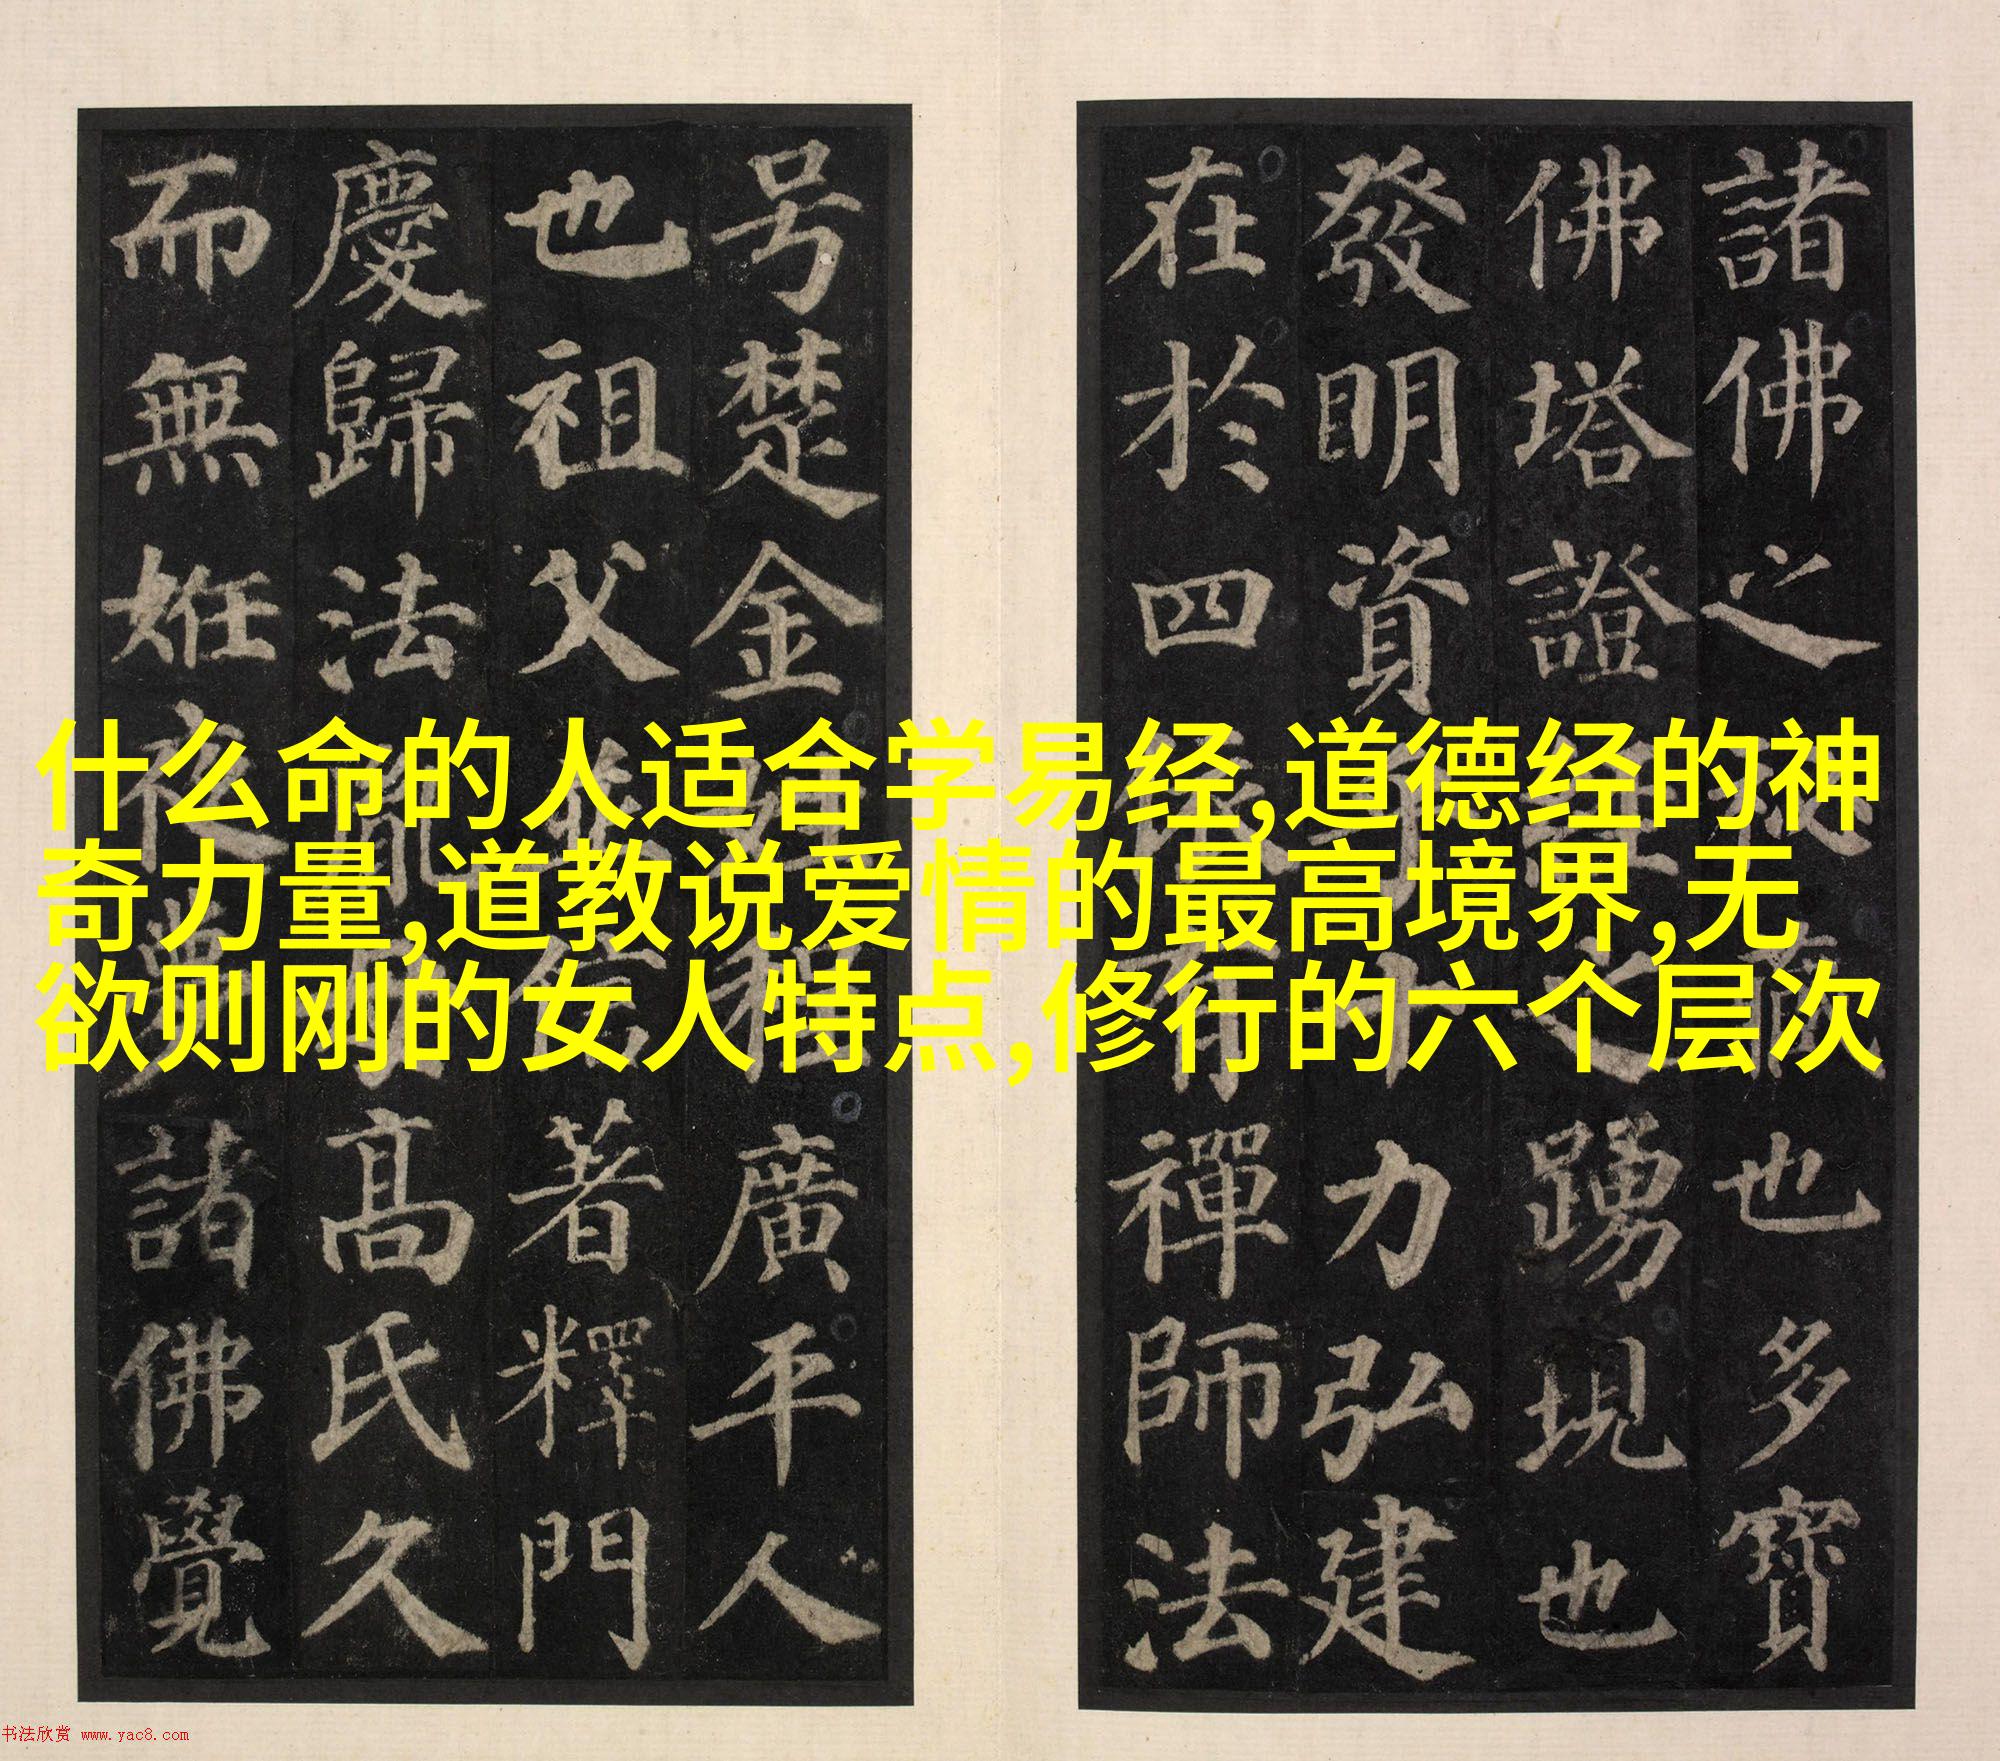 諸佛之祕藏也多寶
佛塔證經之踴現也
發明資乎十力弘建
在於四依有禪師法
号楚金姓程廣平人
也祖父並信著釋門
慶歸法胤母高氏久
而無姙夜夢諸佛覺
什么命的人适合学易经,道德经的神
奇力量,道教说爱情的最高境界,无
欲则刚的女人特点,修行的六个层次
书法欣赏 www.yac8.com